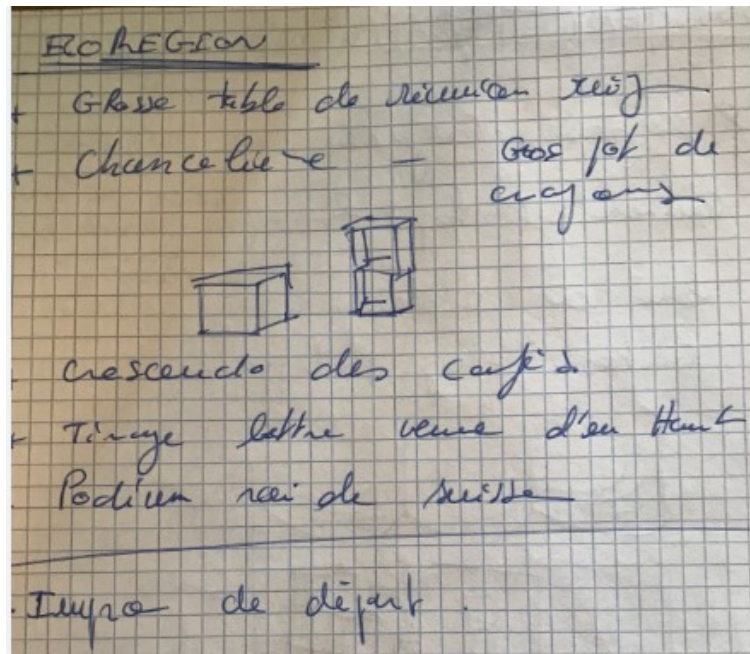 ECOREGION
+ Grosse table de réunion
+ Chancelière - Gros pot de
crayons
- crescendo des cafés
+ Tirage lettre venue d'en Haut
. Podium roi de suisse
. Impro de départ.